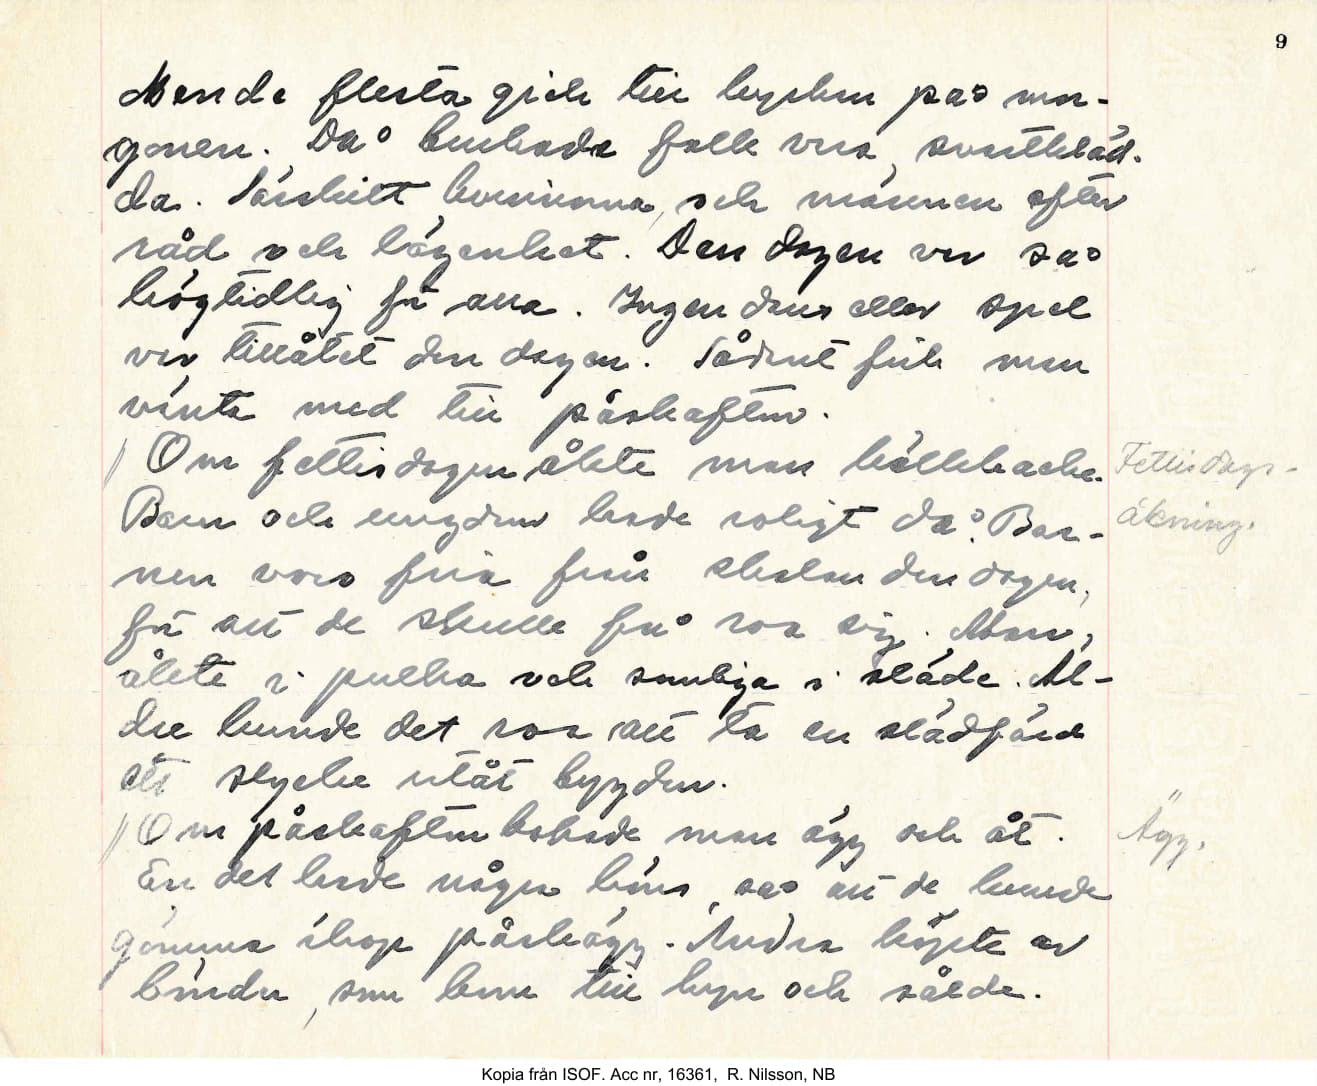 9
Men de flesta gick till kyrkan på mor-
gonen. Då brukade folk vara svartkläd-
da. Särskilt kvinnorna, och männen efter
råd och lägenhet. Den dagen var så
högtidlig för alla. Ingen dans eller spel
var tillåtet den dagen. Sådant fick man
vänta med till påskafton.
Om fettisdagen åkte man kälkbacke.
Fettisdags-
Barn och ungdom hade roligt då. Bar-
åkning.
nen voro fria från skolan den dagen,
för att de skulle få roa sig. Man
åkte i pulka och somliga i släde. Äl-
dre kunde det roa att ta en slädfärd
ett stycke utåt bygden.
Om påskafton kokade man ägg och åt.
Ägg.
En del hade några höns, så att de kunde
gömma ihop påskägg. Andra köpte av
bönder, som kom till byn och sålde.
Kopia från ISOF. Acc nr, 16361, R. Nilsson, NB